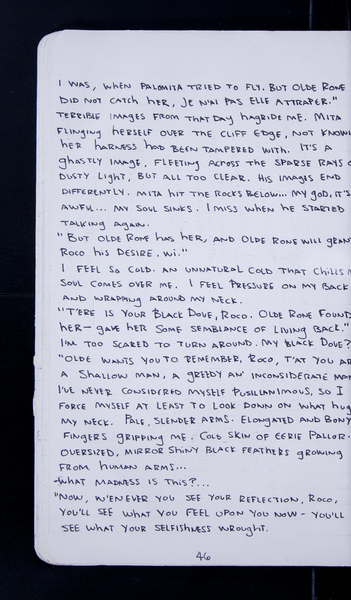 I WAS, WHEN PALOMITA TRIED TO FLY. BUT OLDE RONE
DID NOT CATCH HER, JE N'AI PAS ELLE ATTRAPER."
TERRIBLE IMAGES FROM THAT DAY HAGRIDE ME. MITA
FLINGING HERSELF OVER THE CLIFF EDGE, NOT KNOWI
HER HARNESS HAD BEEN TAMPERED WITH. IT'S A
GHASTLY IMAGE, FLEETING ACROSS THE SPARSE RAYS O
DUSTY LIGHT, BUT ALL TOO CLEAR. HIS IMAGES END
DIFFERENTLY. MITA HIT THE ROCKS BELOW... MY GOD, IT'S
AWFUL... MY SOUL SINKS. I MISS WHEN HE STARTED
TALKING AGAIN.
"BUT OLDE RONE HAS HER, AND OLDE RONE WILL GRAN
ROCO HIS DESIRE. WI."
I FEEL SO COLD. AN UNNATURAL COLD THAT CHILLS M
SOUL COMES OVER ME. I FEEL PRESSURE ON MY BACK
AND WRAPPING AROUND MY NECK.
"T'ERE IS YOUR BLACK DOVE, ROCO. OLDE RONE FOUND
HER - GAVE HER SOME SEMBLANCE OF LIVING BACK."
I'M TOO SCARED TO TURN AROUND. MY BLACK DOVE?
"OLDE WANTS YOU TO REMEMBER, ROCO, T'AT YOU AR
A SHALLOW MAN, A GREEDY AN' INCONSIDERATE MAN
I'VE NEVER CONSIDERED MYSELF PUSILLANIMOUS, SO I
FORCE MYSELF AT LEAST TO LOOK DOWN ON WHAT HUG
MY NECK. PALE, SLENDER ARMS. ELONGATED AND BONY
FINGERS GRIPPING ME. COLD SKIN OF EERIE PALLOR.
OVERSIZED, MIRROR SHINY BLACK FEATHERS GROWING
FROM HUMAN ARMS...
-WHAT MADNESS IS THIS?...
"NOW, W'ENEVER YOU SEE YOUR REFLECTION, ROCO,
YOU'LL SEE WHAT YOU FEEL UPON YOU NOW - YOU'LL
SEE WHAT YOUR SELFISHNESS WROUGHT.
46